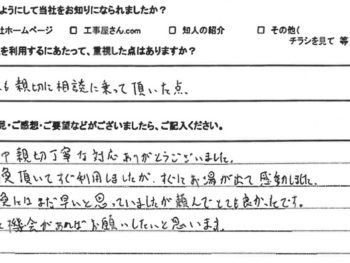 ようにして当社をお知りになられましたか？
社ホームページ □ 工事屋さん.com □ 知人の紹介 □ その他(
チラシを見て 等
を利用するにあたって、重視した点はありますか？
も親切に相談に乗って頂いた点。
見・ご感想・ご要望などがございましたら、ご記入ください。
親切丁寧な対応ありがとうございました。
換頂いてすぐ利用しましたが、すぐにお湯が出て感動しました。
換にはまだ早いと思っていましたが頼んでとても良かったです。
機会があればお願いしたいと思います。